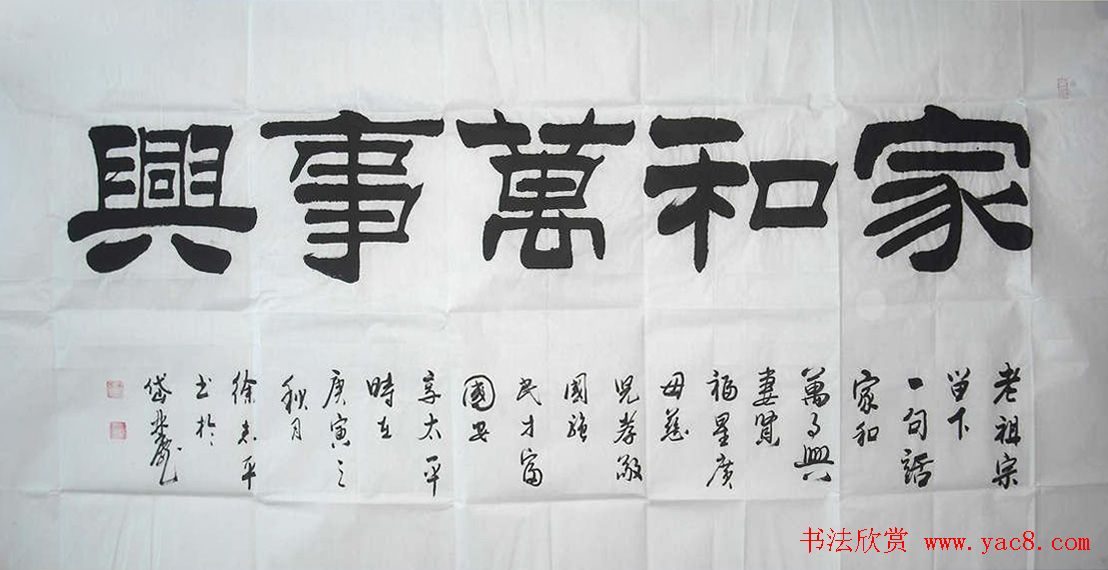 家和萬事興
老祖宗
留下
一句話
家和
萬事興
妻賢
福星廣
母慈
兒孝敬
國強
民才富
國安
享太平
時在
庚寅之
秋月
徐志平
书於
岱北
书法欣赏 www.yac8.com